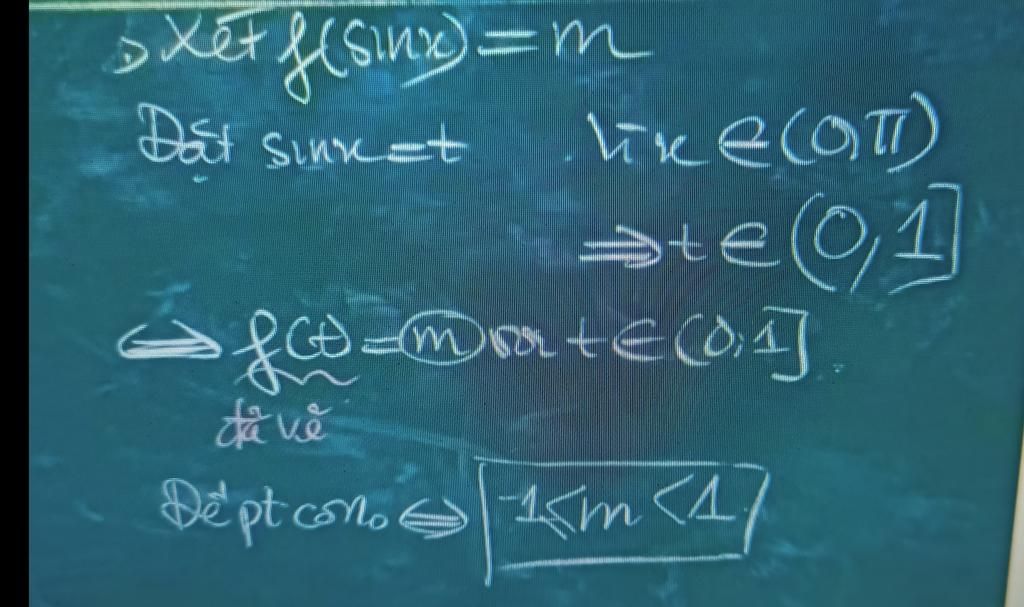 Xét f(sinx) = m
Đặt sinx = t Vì x ∈ (0, π)
⇒ t ∈ (0, 1]
⇔ f(t) = m với t ∈ (0; 1]
đã vẽ
Để pt có n₀ ⇔ -1 ≤ m < 1